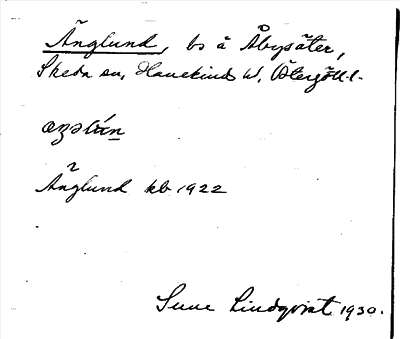 Änglund, bs å Åbysäter,
Skeda sn, Hanekinds hd, Östergötl.
Änglund kb 1922
Sune Lindqvist 1930.